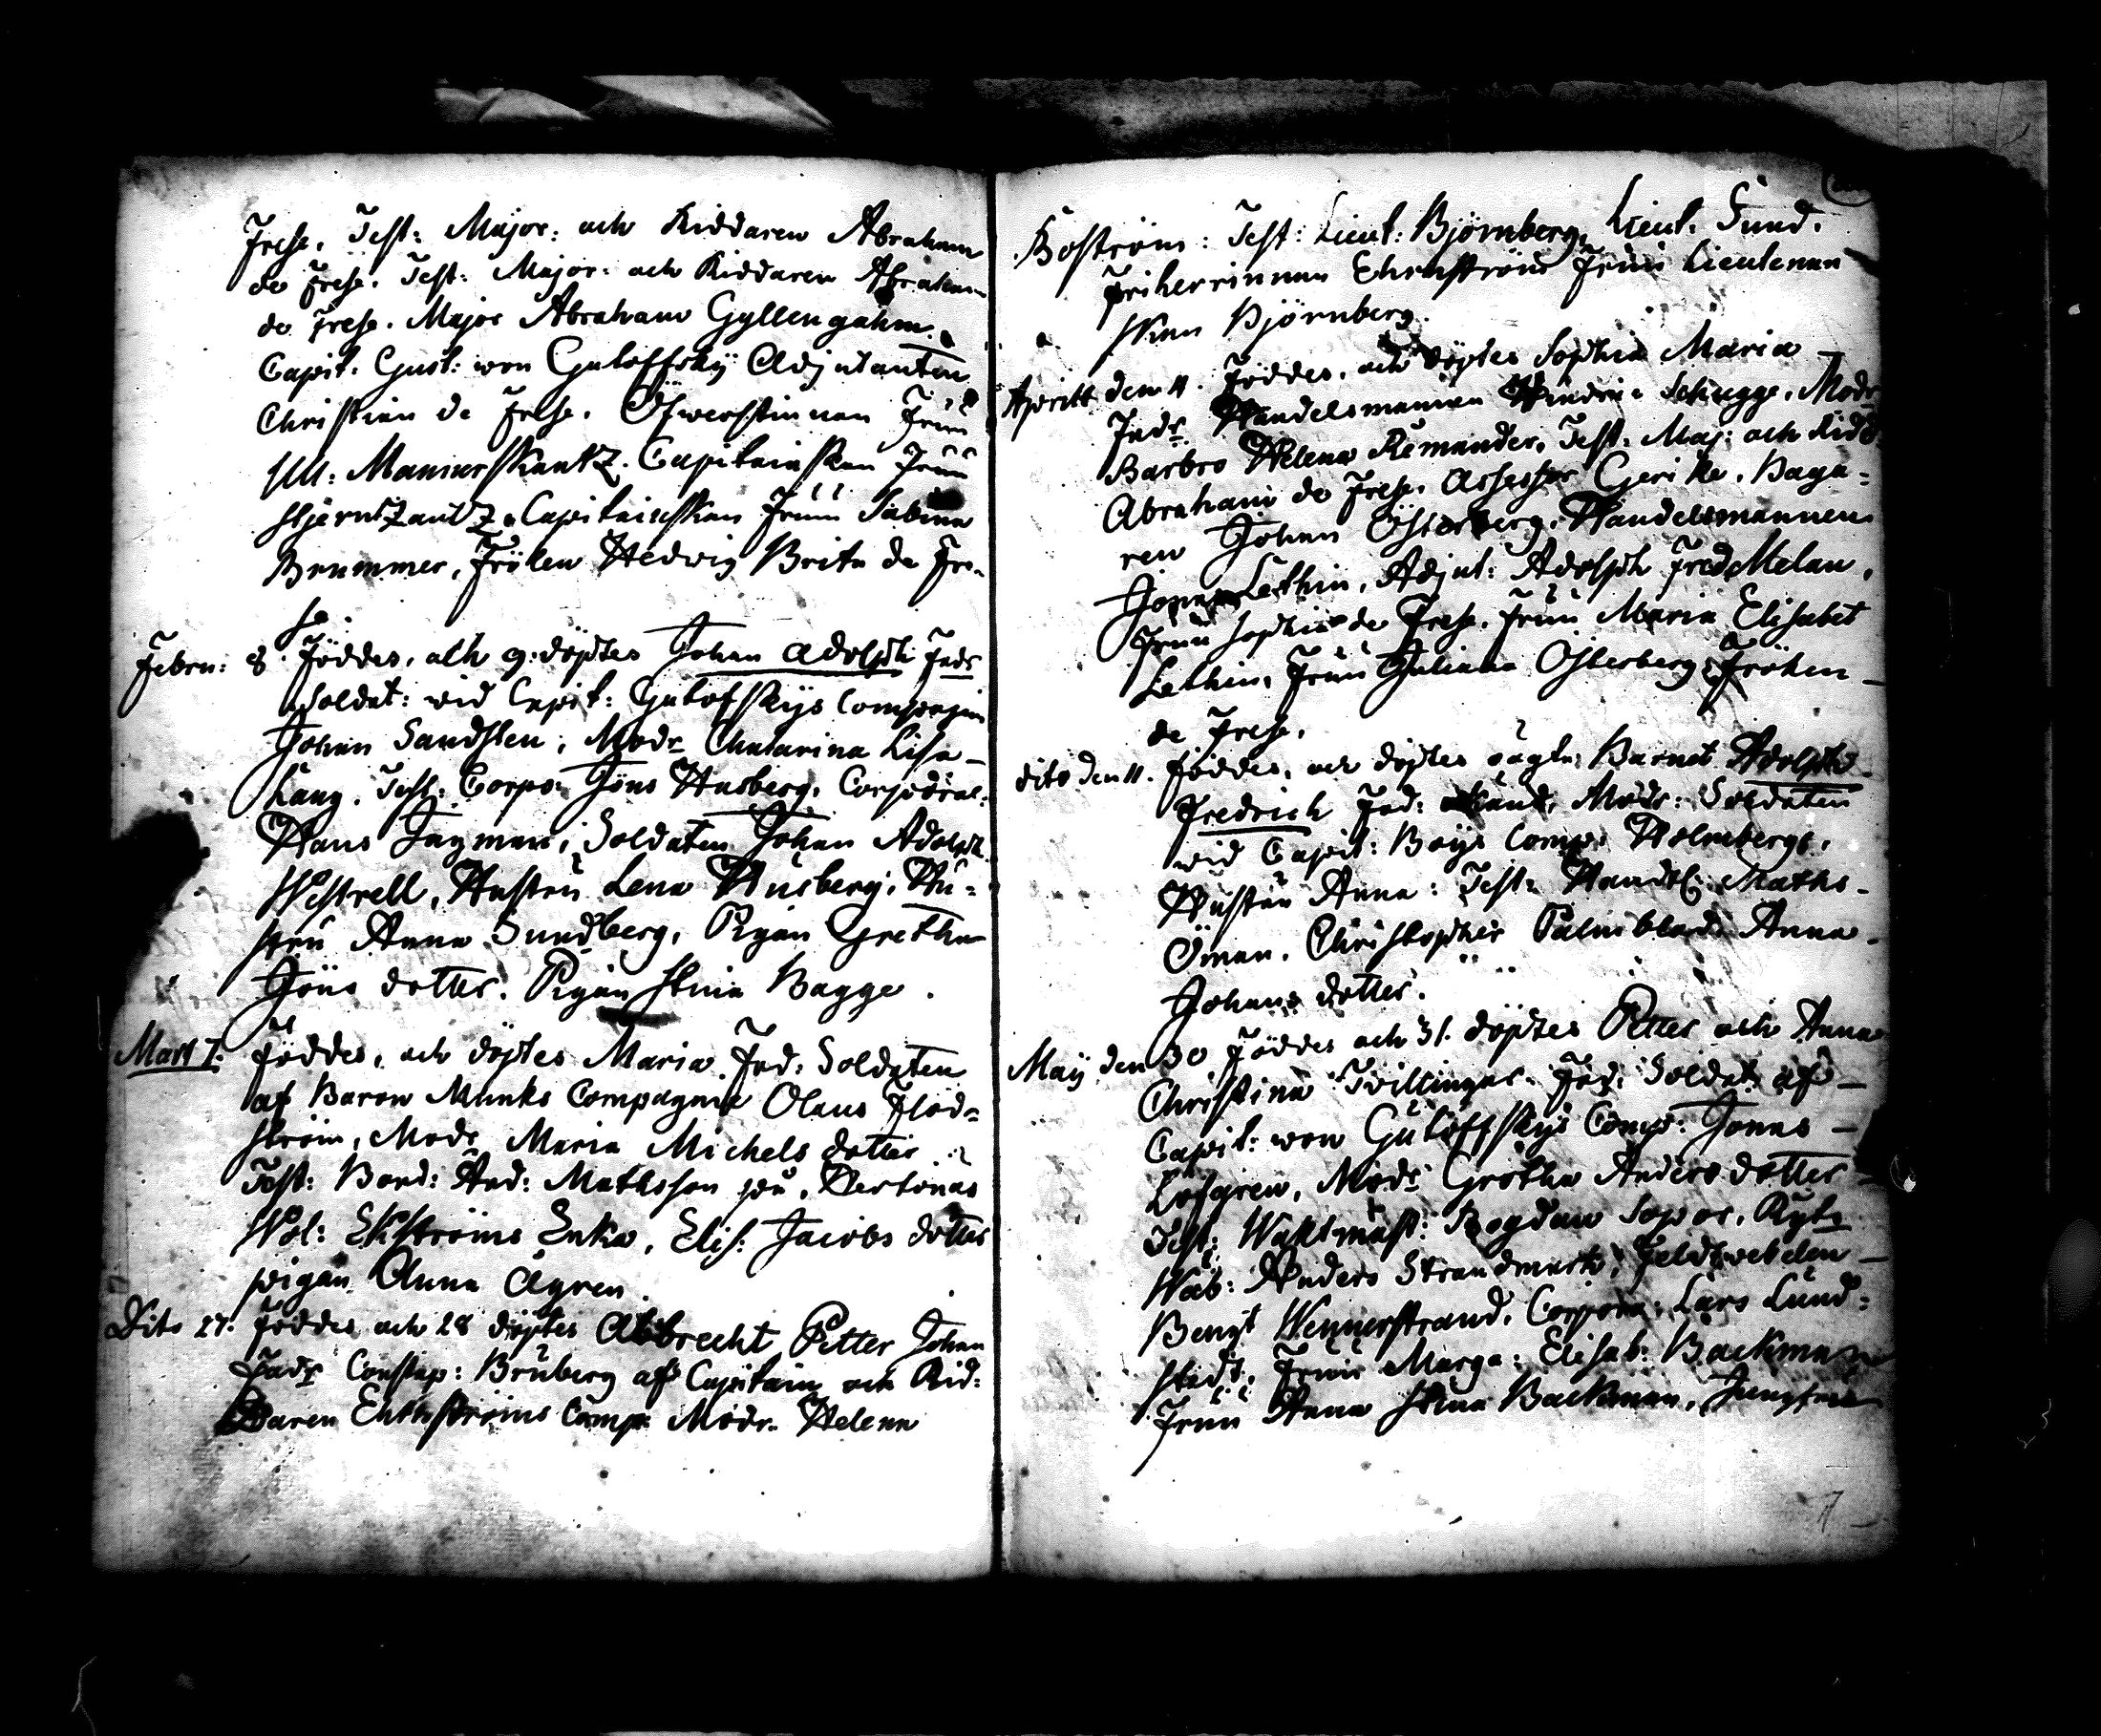 Frese. Test: Major: och Riddaren Abraham
de Frese. Test: Major: och Riddaren Abraham
de Frese. Major Abraham Gyllengahm.
Capit. Gust: von Gutoffsky Adjutanten
Christian de Frese. Öfwerstinnan Fruu
Ull: Manierskantz. Capitainskan Fruu
Stjerntzantz. Capitainskan Fruu Sabina
Brummer, Fröken Hedwig Brita de Fre-
se.
Febru: 8. föddes, och 9. döptes Johan Adolph Fadr
Soldat: wid Capit: Gutofskys Compagni
Johan Sandsten, Modr Chatarina Lisa
Lang. Test: Corpo: Jöns Husberg. Corporal:
Hans Tagman, Soldaten Johan Adolph
Westrell, Hustru Lena Husberg, Hu-
stru Anna Sundberg, Pigan Gretha
Jöns dotter. Pigan Stina Bagge.
Mart 1. föddes, och döptes Maria. Fad: Soldaten
af Baron Munks Compagnie Olaus Flod-
ström, Modr Maria Michels dotter
Test: Bond: And: Mathsson
Wol: Ekströms Enka, Elis: Jacobs dotter
pigan Anna Ågren.
Dito 27. föddes och 28 döptes Albrecht Petter Johan
Fadr Constap: Bruberg af Capitain och Rid:
daren Ehrnströms Comp: Modr. Helena
Boström: Test: Lieut: Björnberg, Lieut. Sund.
Friherrinnan Ehrnström Fruu Lieutenan
skan Björnberg.
Aprill den 11. Föddes, och döptes Sophia Maria
Fadr Handelsmannen Hindric Schugge, Modr
Barbro Helena Remander, Test: Maj: och Ridd
Abraham de Frese. Assessor Gerike. Baga-
ren Johan Österberg, Handelsmannen
Lethin, Adjut: Adolph Fred Melan,
Fruu Sophia de Frese. Fruu Maria Elisabet
Lethin, Fruu Juliana Österberg. Fröken
de Frese.
dito den 11. föddes, och döptes oägta Barnet Adolph
Fredrich Fad: okänd, Modr: Soldaten
wid Capit: Boijs Comp: Holmbergs.
Hustru Anna: Test: Handl: Maths
Öman. Christopher Palmblad. Anna
Johans dotter.
Maÿ den 30. Föddes och 31. döptes Petter och Anna
Christina Tvillingar. Fad: Soldat af
Capit: von Gutoffskys Comp: Jonas
Löfgren, Modr Gretha Anders dotter
Test: Waktmäst: Bogdan Sopor. Ryt
Wab: Anders Strandmark, Feldtwebelen
Bengt Wennerstrand. Corpora: Lars Lund-
stedt. Fruu Marga: Elisab: Backman
Fruu Anna Stina Backman, Jungfru
7